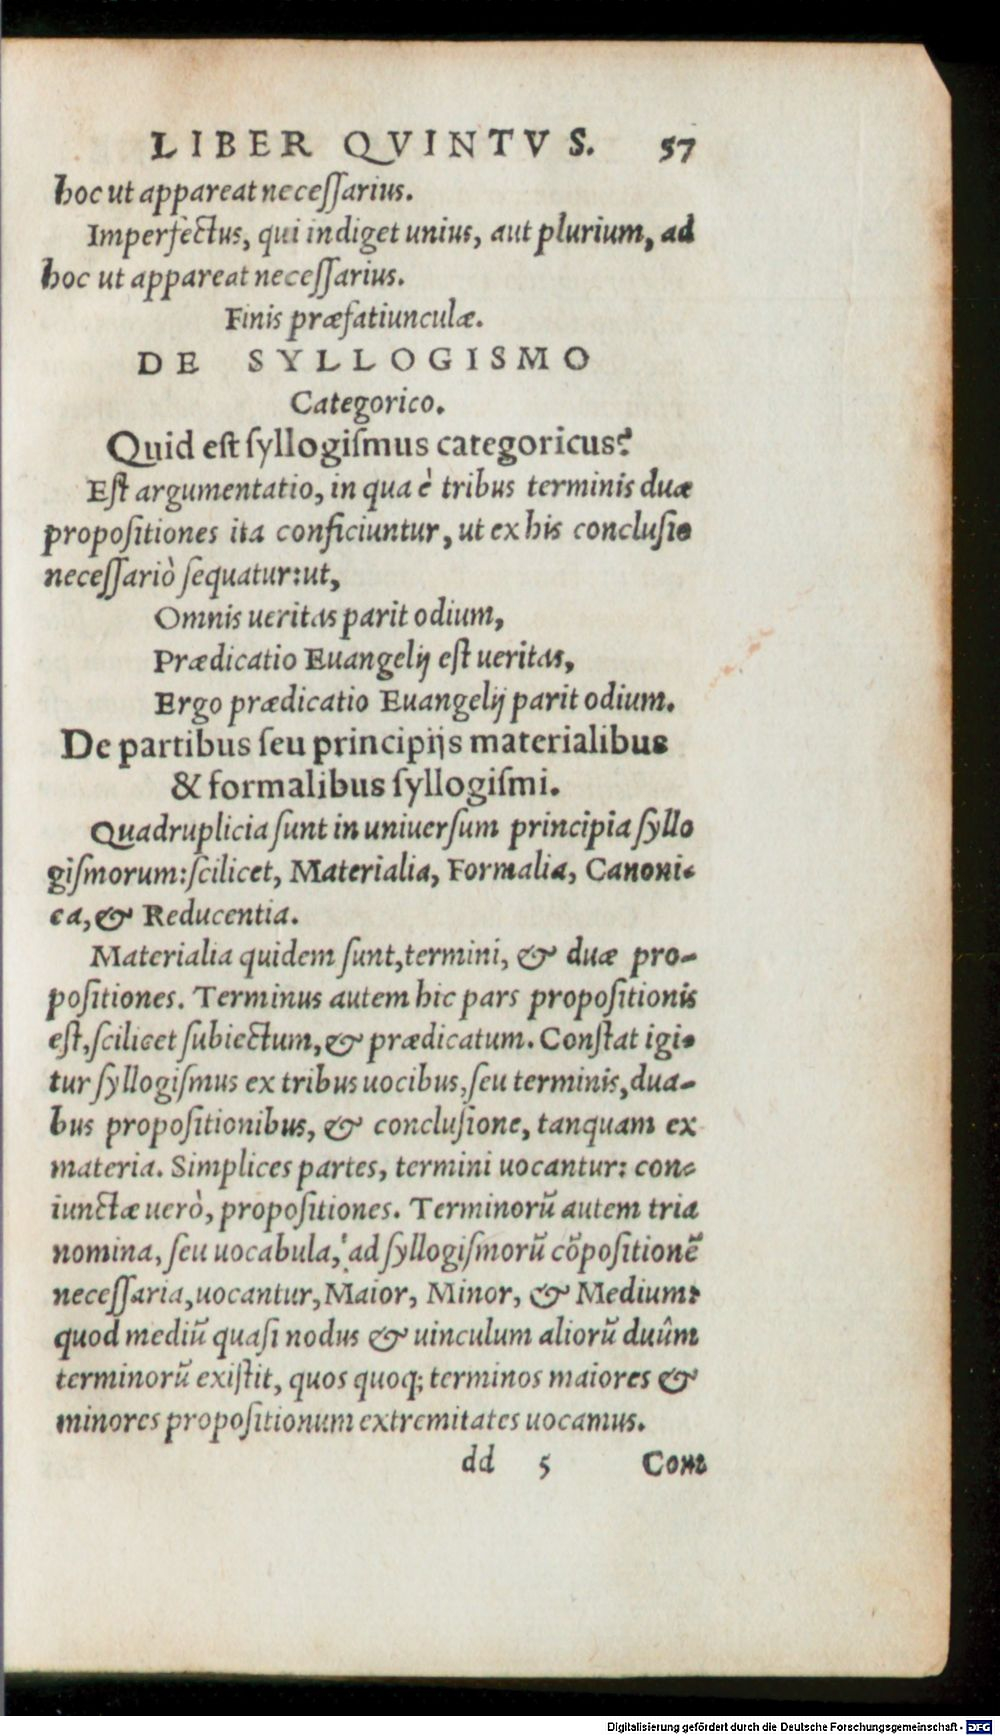 LIBER QVINTVS. 57
hoc ut appareat neceſſarius.
Imperfectus, qui indiget unius, aut plurium, ad
hoc ut appareat neceſſarius.
Finis præfatiunculæ.
DE SYLLOGISMO
Categorico.
Quid eſt ſyllogiſmus categoricus?
Eſt argumentatio, in qua è tribus terminis duæ
propoſitiones ita conficiuntur, ut ex his concluſio
neceſſariò ſequatur: ut,
Omnis ueritas parit odium,
Prædicatio Euangelij eſt ueritas,
Ergo prædicatio Euangelij parit odium.
De partibus ſeu principijs materialibus
& formalibus ſyllogiſmi.
Quadruplicia ſunt in uniuerſum principia ſyllo
giſmorum: ſcilicet, Materialia, Formalia, Canoni-
ca, & Reducentia.
Materialia quidem ſunt, termini, & duæ pro-
poſitiones. Terminus autem hic pars propoſitionis
eſt, ſcilicet ſubiectum, & prædicatum. Conſtat igi-
tur ſyllogiſmus ex tribus uocibus, ſeu terminis, dua-
bus propoſitionibus, & concluſione, tanquam ex
materia. Simplices partes, termini uocantur: con-
iunctæ uerò, propoſitiones. Terminorũ autem tria
nomina, ſeu uocabula, ad ſyllogiſmorũ cõpoſitionẽ
neceſſaria, uocantur, Maior, Minor, & Medium:
quod mediũ quaſi nodus & uinculum aliorũ duûm
terminorũ exiſtit, quos quoq; terminos maiores &
minores propoſitionum extremitates uocamus.
dd 5 Con-
Digitalisierung gefördert durch die Deutsche Forschungsgemeinschaft - DFG